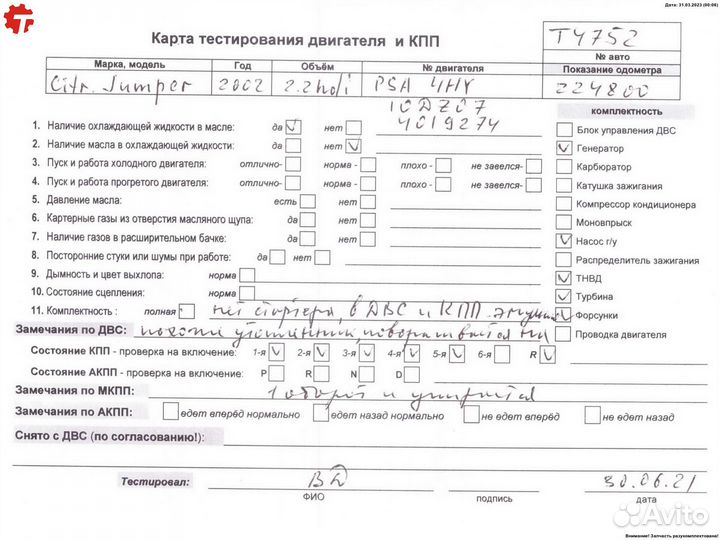 Дата: 31.03.2023 (00:06)
Карта тестирования двигателя и КПП
TY752
№ авто
Марка, модель Год Объём № двигателя Показание одометра
Citr. Jumper 2002 2.2hdi PSA 4HY 224800
10DZ07
4019274
комплектность
1. Наличие охлаждающей жидкости в масле: да нет
Блок управления ДВС
2. Наличие масла в охлаждающей жидкости: да нет
Генератор
3. Пуск и работа холодного двигателя: отлично- норма - плохо - не завелся-
Карбюратор
4. Пуск и работа прогретого двигателя: отлично- норма - плохо - не завелся-
Катушка зажигания
5. Давление масла: есть нет
Компрессор кондиционера
6. Картерные газы из отверстия масляного щупа: да нет
Моновпрыск
7. Наличие газов в расширительном бачке: да нет
Насос г/у
8. Посторонние стуки или шумы при работе: да нет
Распределитель зажигания
9. Дымность и цвет выхлопа: норма
ТНВД
10. Состояние сцепления: норма
Турбина
11. Комплектность : полная нет стартера, в ДВС и КПП эмульсия
Форсунки
Замечания по ДВС: поворачивается на
Проводка двигателя
Состояние КПП - проверка на включение: 1-я 2-я 3-я 4-я 5-я 6-я R
Состояние АКПП - проверка на включение: P R N D
Замечания по МКПП: 1 оборот и упирается
Замечания по АКПП: едет вперёд нормально едет назад нормально не едет вперёд не едет назад
Снято с ДВС (по согласованию!):
Тестировал: ВД 30.06.21
ФИО подпись дата
Avito
Внимание! Запчасть разукомплектована!